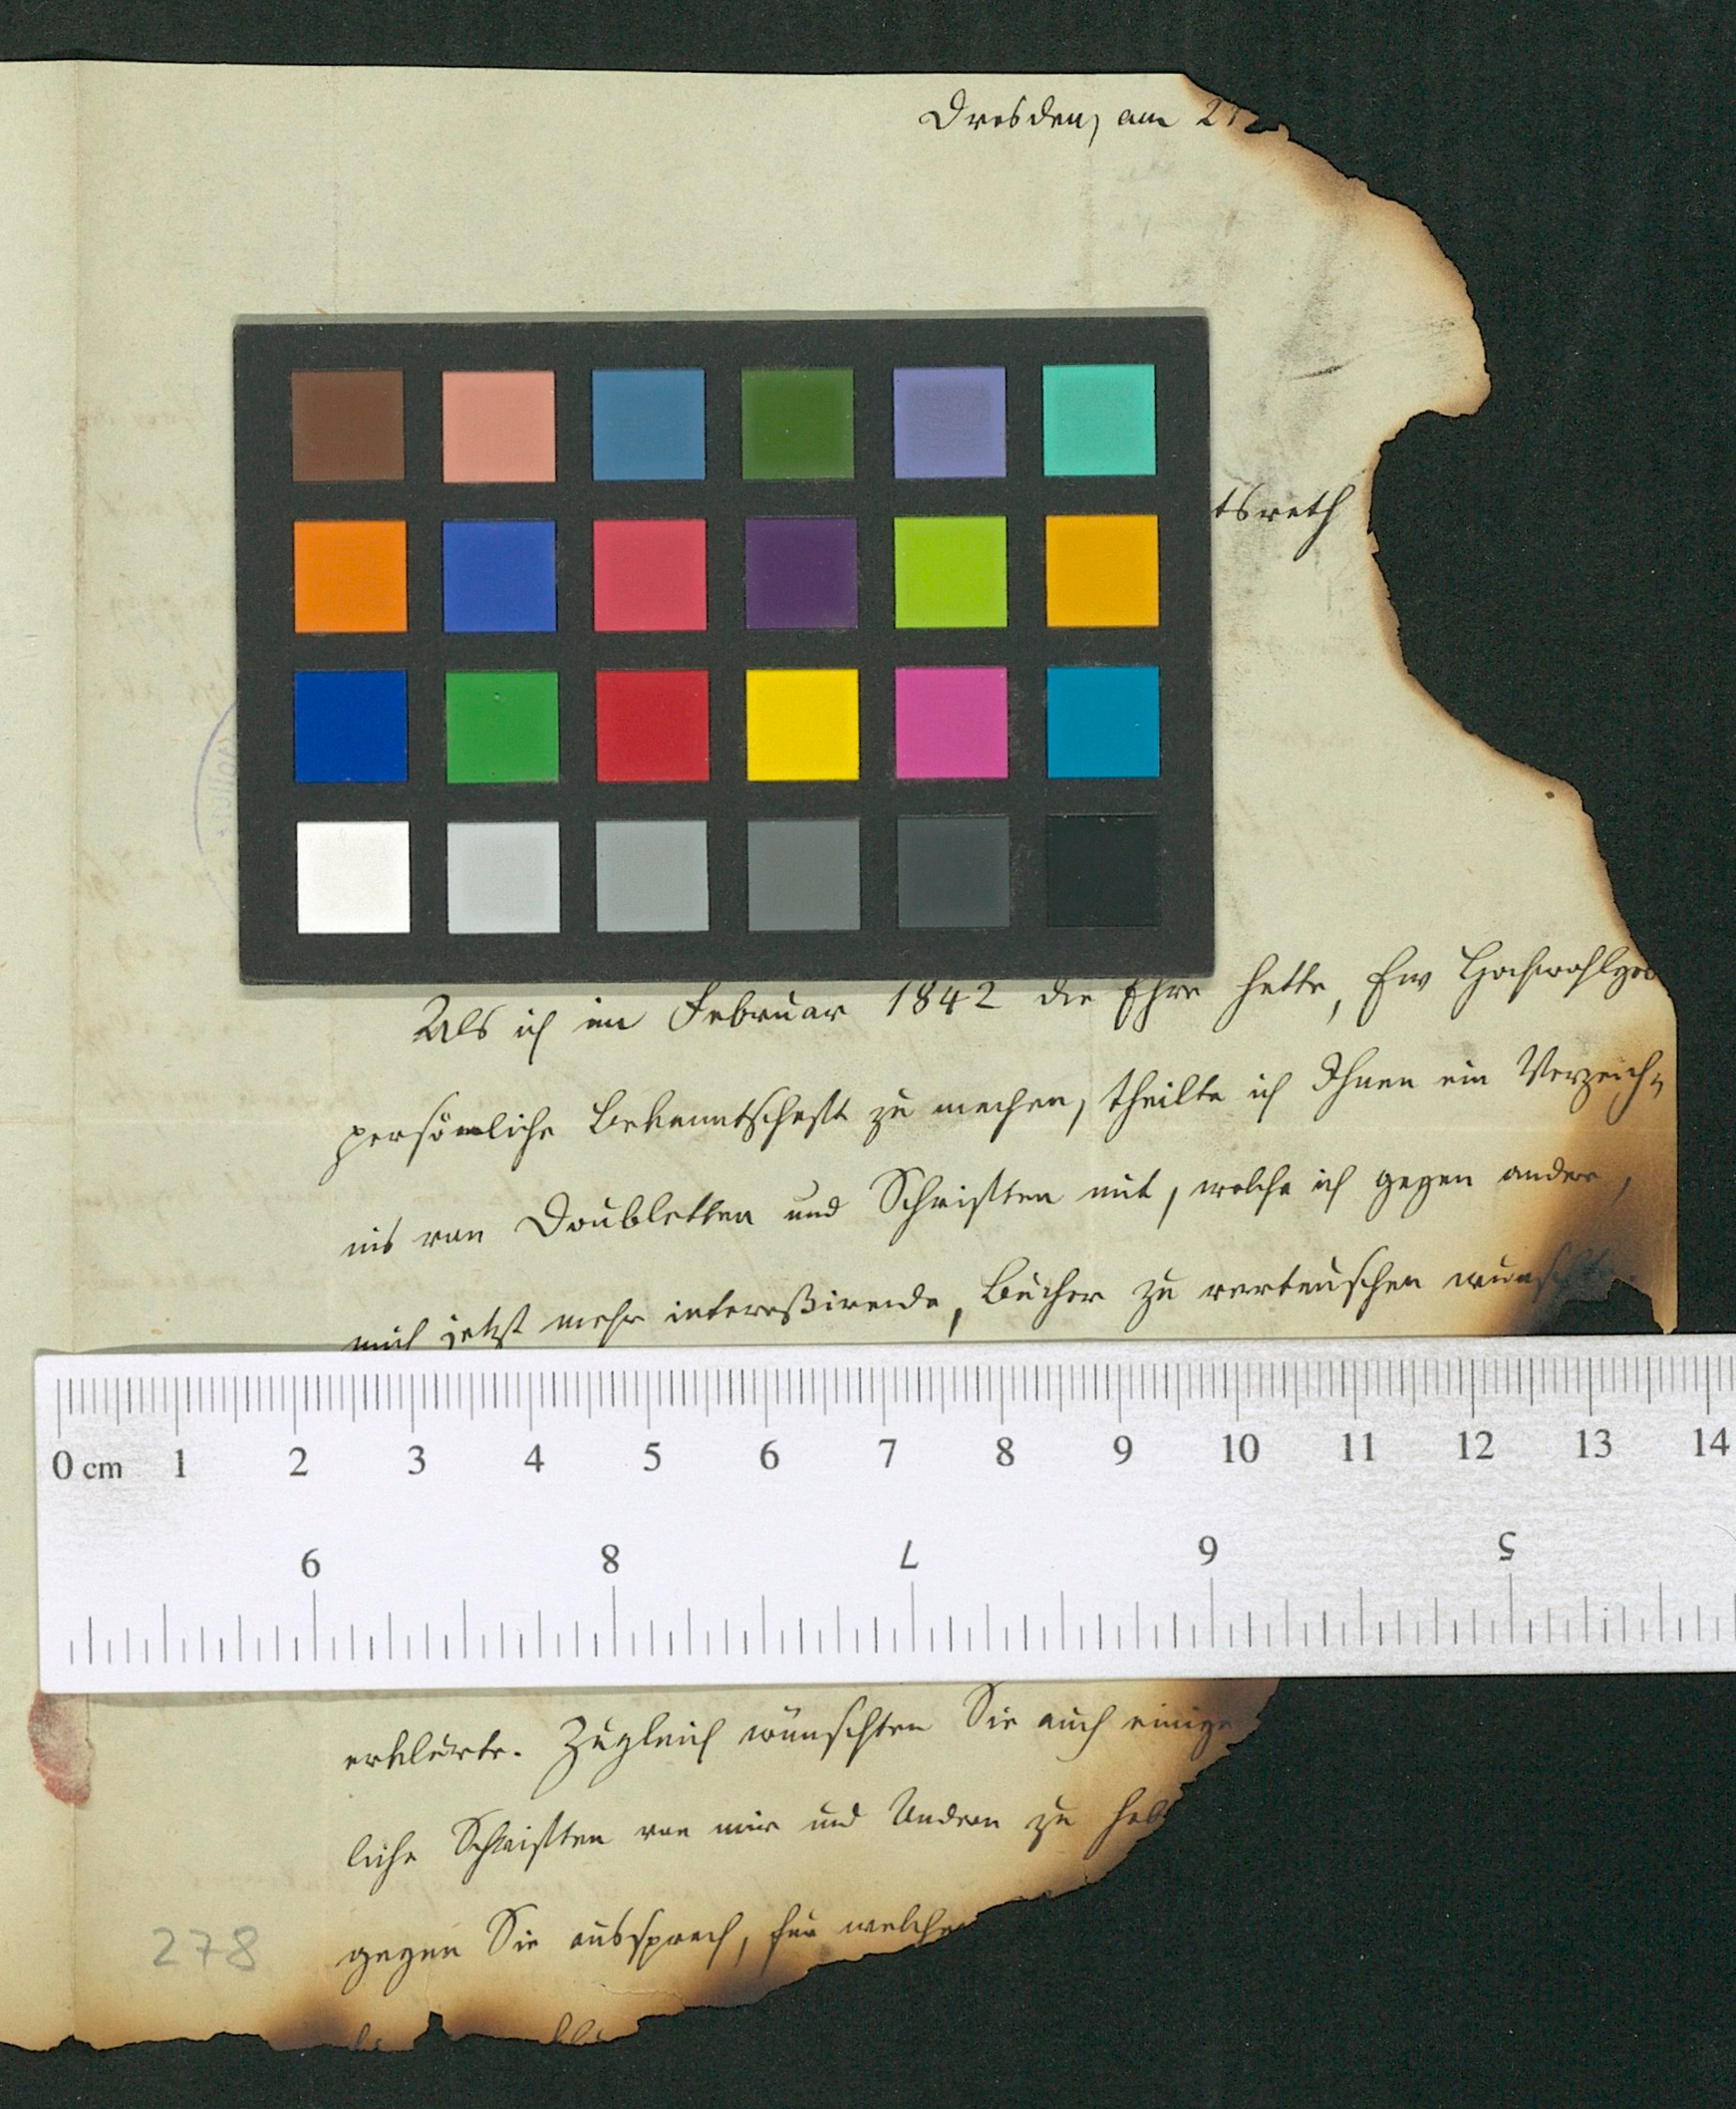 Dresden, am 27
tsrath
Als ich im Februar 1842 die Ehre hatte, Ew Hochwohlgeb
persönliche Bekanntschaft zu machen, theilte ich Ihnen ein Verzeich-
nis von Doubletten und Schriften mit, welche ich gegen andere,
mich jetzt mehr intereßirende, Bücher zu vertauschen wünschte.
0 cm 1 2 3 4 5 6 7 8 9 10 11 12 13 14
9 8 7 6 5
erklärte. Zugleich wünschten Sie auch einige
liche Schriften von mir und Andern zu hab
gegen Sie aussprach, für welche
278